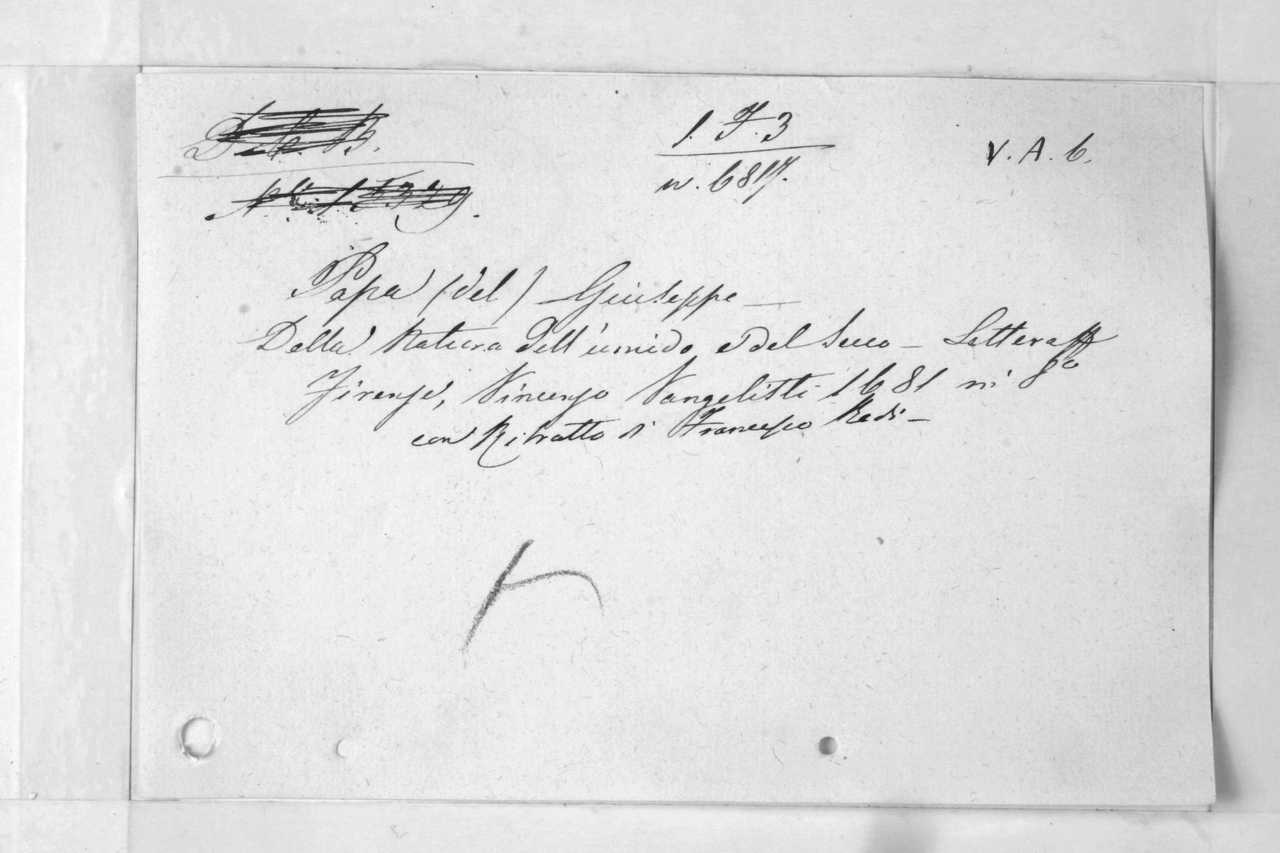 1. F. 3
n. 6817.
V. A. 6.
Papa (del) Giuseppe —
Della Natura dell'umido e del Secco — Lettera
Firenze, Vincenzo Vangelisti 1681 in 8º
con Ritratto di Francesco Redi —